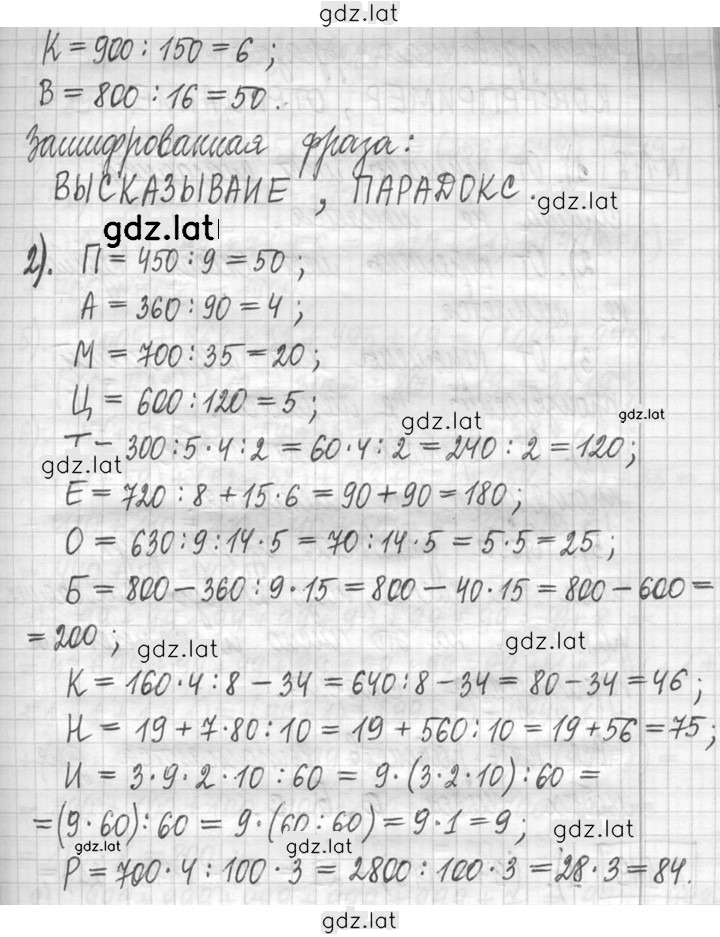 gdz.lat
К = 900 : 150 = 6 ;
В = 800 : 16 = 50 .
Зашифрованная фраза:
ВЫСКАЗЫВАИЕ , ПАРАДОКС .
gdz.lat
gdz.lat
2). П = 450 : 9 = 50 ;
А = 360 : 90 = 4 ;
М = 700 : 35 = 20 ;
Ц = 600 : 120 = 5 ;
gdz.lat
gdz.lat
Т = 300 : 5 · 4 : 2 = 60 · 4 : 2 = 240 : 2 = 120 ;
gdz.lat
Е = 720 : 8 + 15 · 6 = 90 + 90 = 180 ;
О = 630 : 9 : 14 · 5 = 70 : 14 · 5 = 5 · 5 = 25 ;
Б = 800 – 360 : 9 · 15 = 800 – 40 · 15 = 800 – 600 =
= 200 ;
gdz.lat
gdz.lat
К = 160 · 4 : 8 – 34 = 640 : 8 – 34 = 80 – 34 = 46 ;
Н = 19 + 7 · 80 : 10 = 19 + 560 : 10 = 19 + 56 = 75 ;
И = 3 · 9 · 2 · 10 : 60 = 9 · (3 · 2 · 10) : 60 =
= (9 · 60) : 60 = 9 · (60 : 60) = 9 · 1 = 9 ;
gdz.lat
gdz.lat
gdz.lat
Р = 700 · 4 : 100 · 3 = 2800 : 100 · 3 = 28 · 3 = 84 .
gdz.lat